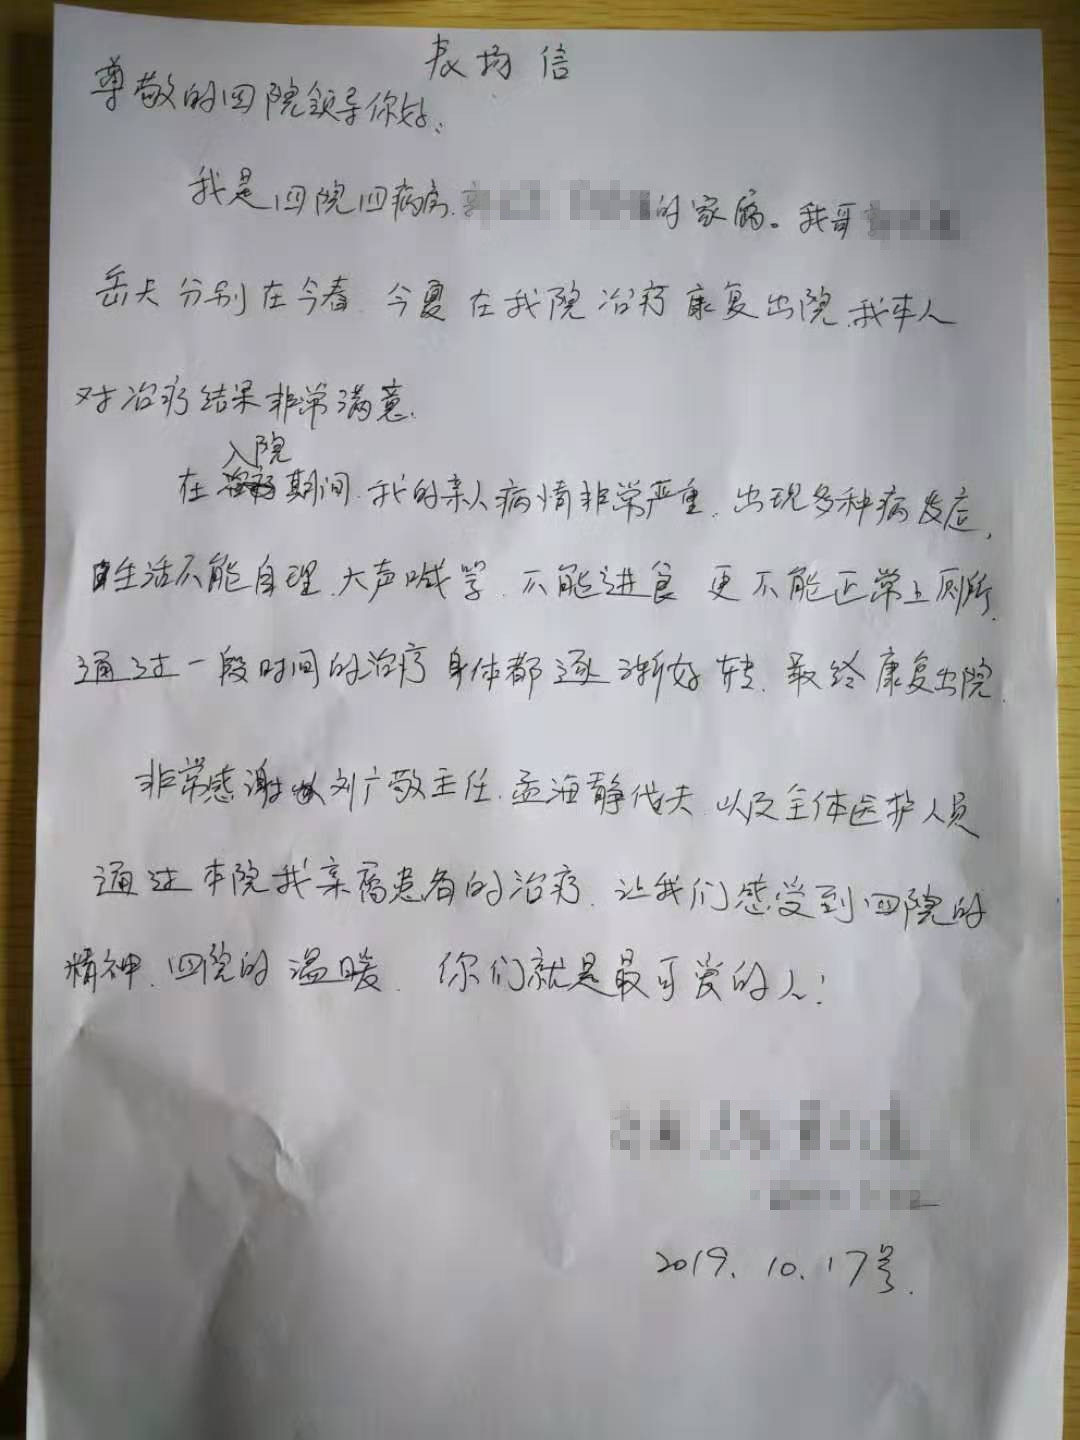 表扬信
尊敬的四院领导你好:
我是四院四病房.的家属。我哥
岳父分别在今春.今夏在我院治疗康复出院.我本人
对治疗结果非常满意.
入院
在期间.我的亲人病情非常严重.出现多种病发症,
生活不能自理.大声喊.不能进食更不能正常上厕所.
通过一段时间的治疗身体都逐渐好转.最终康复出院.
非常感谢刘广敬主任.孟海静代夫以及全体医护人员
通过本院我亲属患者的治疗.让我们感受到四院的
精神.四院的温暖.你们就是最可爱的人!
2019.10.17号.